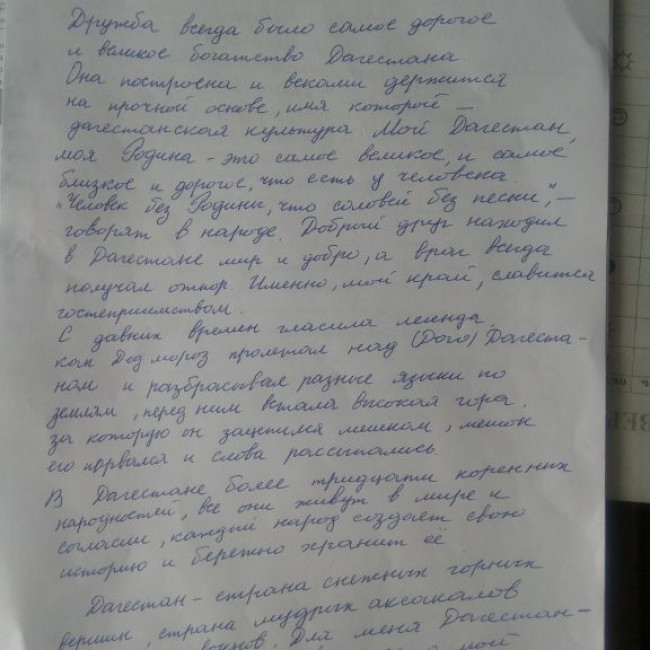 Дружба всегда было самое дорогое
и великое богатство Дагестана
Она построена и веками держится
на прочной основе, имя которой —
дагестанская культура. Мой Дагестан,
моя Родина - это самое великое, и самое
близкое и дорогое, что есть у человека.
"Человек без Родины, что соловей без песни", -
говорят в народе. Добрый друг находил
в Дагестане мир и добро, а враг всегда
получал отпор. Именно, мой край, славится
гостеприимством.
С давних времен гласила легенда,
как Дед мороз пролетал над (Даго) Дагеста-
ном и разбрасывал разные языки по
землям, перед ним встала высокая гора,
за которую он зацепился мешком, мешок
его порвался и слова рассыпались.
В Дагестане более тридцати коренных
народностей, все они живут в мире и
согласии, каждый народ создаёт свою
историю и бережно хранит её
Дагестан - страна снежных горных
вершин, страна мудрых аксакалов
Для меня Дагестан-
мой